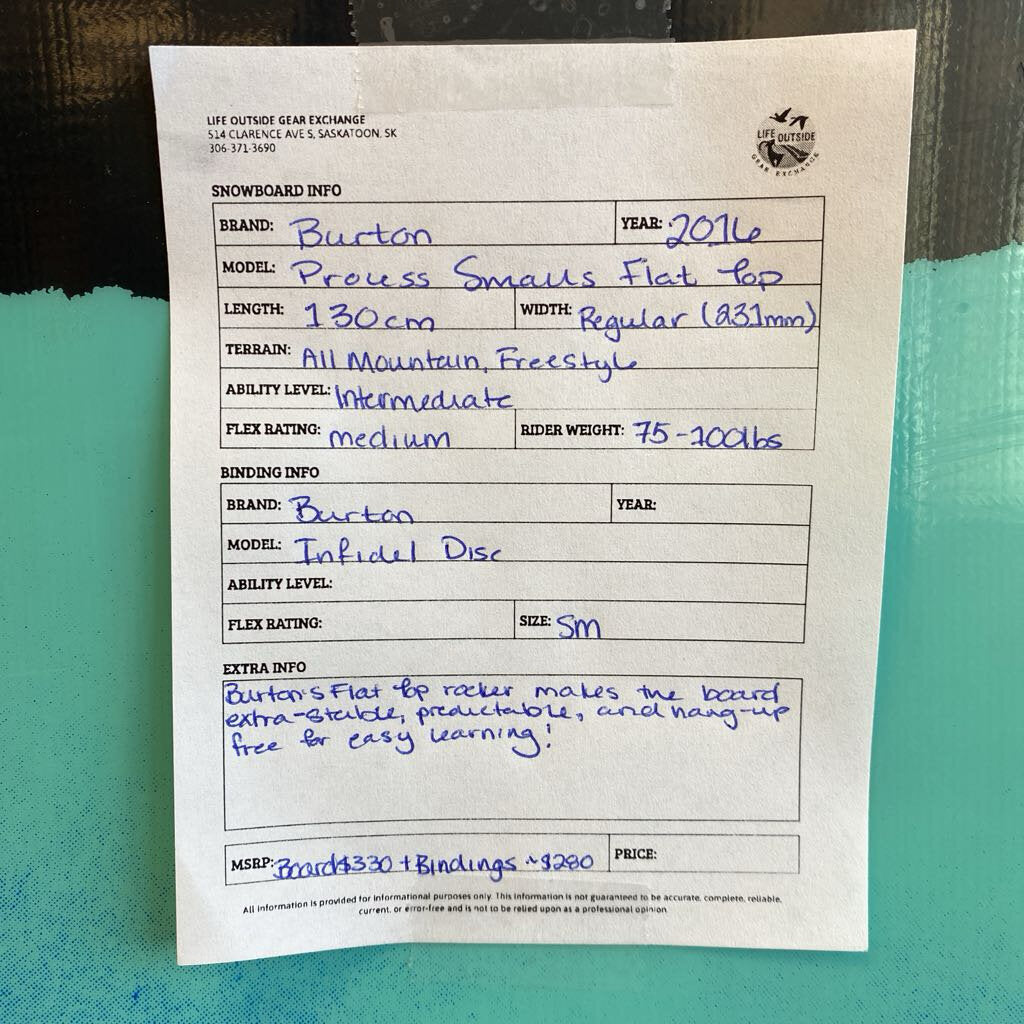 LIFE OUTSIDE GEAR EXCHANGE
514 CLARENCE AVE S, SASKATOON, SK
306-371-3690
LIFE OUTSIDE
GEAR EXCHANGE
SNOWBOARD INFO
BRAND: Burton YEAR: 2016
MODEL: Process Smalls Flat Top
LENGTH: 130cm WIDTH: Regular (231mm)
TERRAIN: All Mountain, Freestyle
ABILITY LEVEL: Intermediate
FLEX RATING: medium RIDER WEIGHT: 75-100lbs
BINDING INFO
BRAND: Burton YEAR:
MODEL: Infidel Disc
ABILITY LEVEL:
FLEX RATING: SIZE: Sm
EXTRA INFO
Burton's Flat top rocker makes the board
extra-stable, predictable, and hang-up
free for easy learning!
MSRP: Board $330 + Bindings ~$280 PRICE:
All information is provided for informational purposes only. This information is not guaranteed to be accurate, complete, reliable,
current, or error-free and is not to be relied upon as a professional opinion.